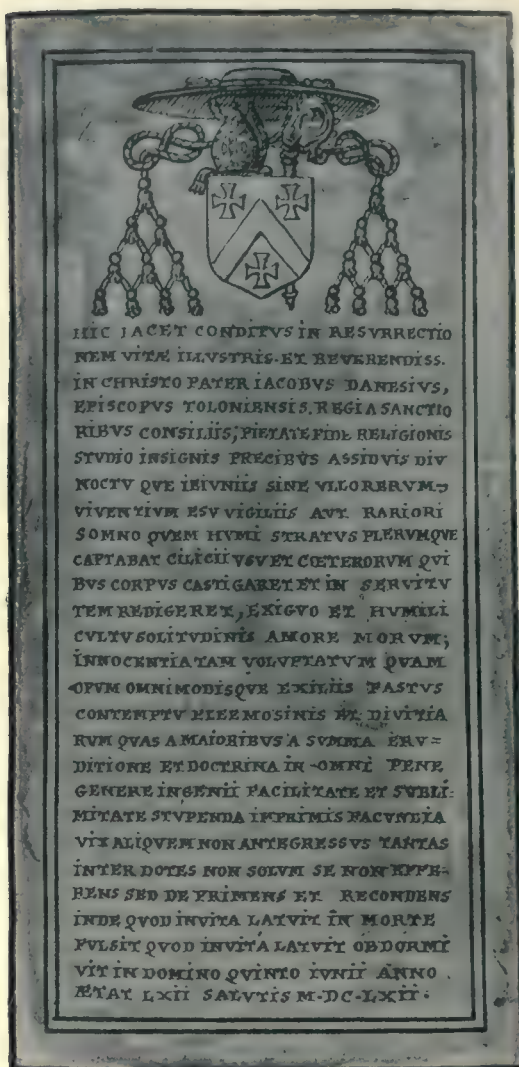 HIC JACET CONDITVS IN RESVRRECTIO
NEM VITÆ ILLVSTRIS. ET REVERENDISS.
IN CHRISTO PATER IACOBVS DANESIVS,
EPISCOPVS TOLONIENSIS. REGI A SANCTIO
RIBVS CONSILIIS, PIETATE FIDE RELIGIONIS
STVDIO INSIGNIS PRECIBVS ASSIDVIS DIV
NOCTV QVE IEIVNIIS SINE VLLO RERVM
VIVENTIVM ESV VIGILIIS AVT RARIORI
SOMNO QVEM HVMI STRATVS PLERVMQVE
CAPTABAT CILICII VSV ET CŒTERORVM QVI
BVS CORPVS CASTIGARET ET IN SERVITV
TEM REDIGERET, EXIGVO ET HVMILI
CVLTV SOLITVDINIS AMORE MORVM;
INNOCENTIA TAM VOLVPTATVM QVAM
OPVM OMNIMODISQVE EXILIIS FASTVS
CONTEMPTV ELEEMOSINIS ET DIVITIA
RVM QVAS A MAIORIBVS A SVMMA ERV=
DITIONE ET DOCTRINA IN OMNI PENE
GENERE INGENII FACILITATE ET SVBLI=
MITATE STVPENDA IMPRIMIS FACVNDIA
VIX ALIQVEM NON ANTEGRESSVS TANTAS
INTER DOTES NON SOLVM SE NON EFFE-
RENS SED DEPRIMENS ET RECONDENS
INDE QVOD IN VITA LATVIT IN MORTE
FVLSIT QVOD IN VITA LATVIT OBDORMI
VIT IN DOMINO QVINTO IVNII ANNO
ÆTAT LXII SALVTIS M·DC·LXII·